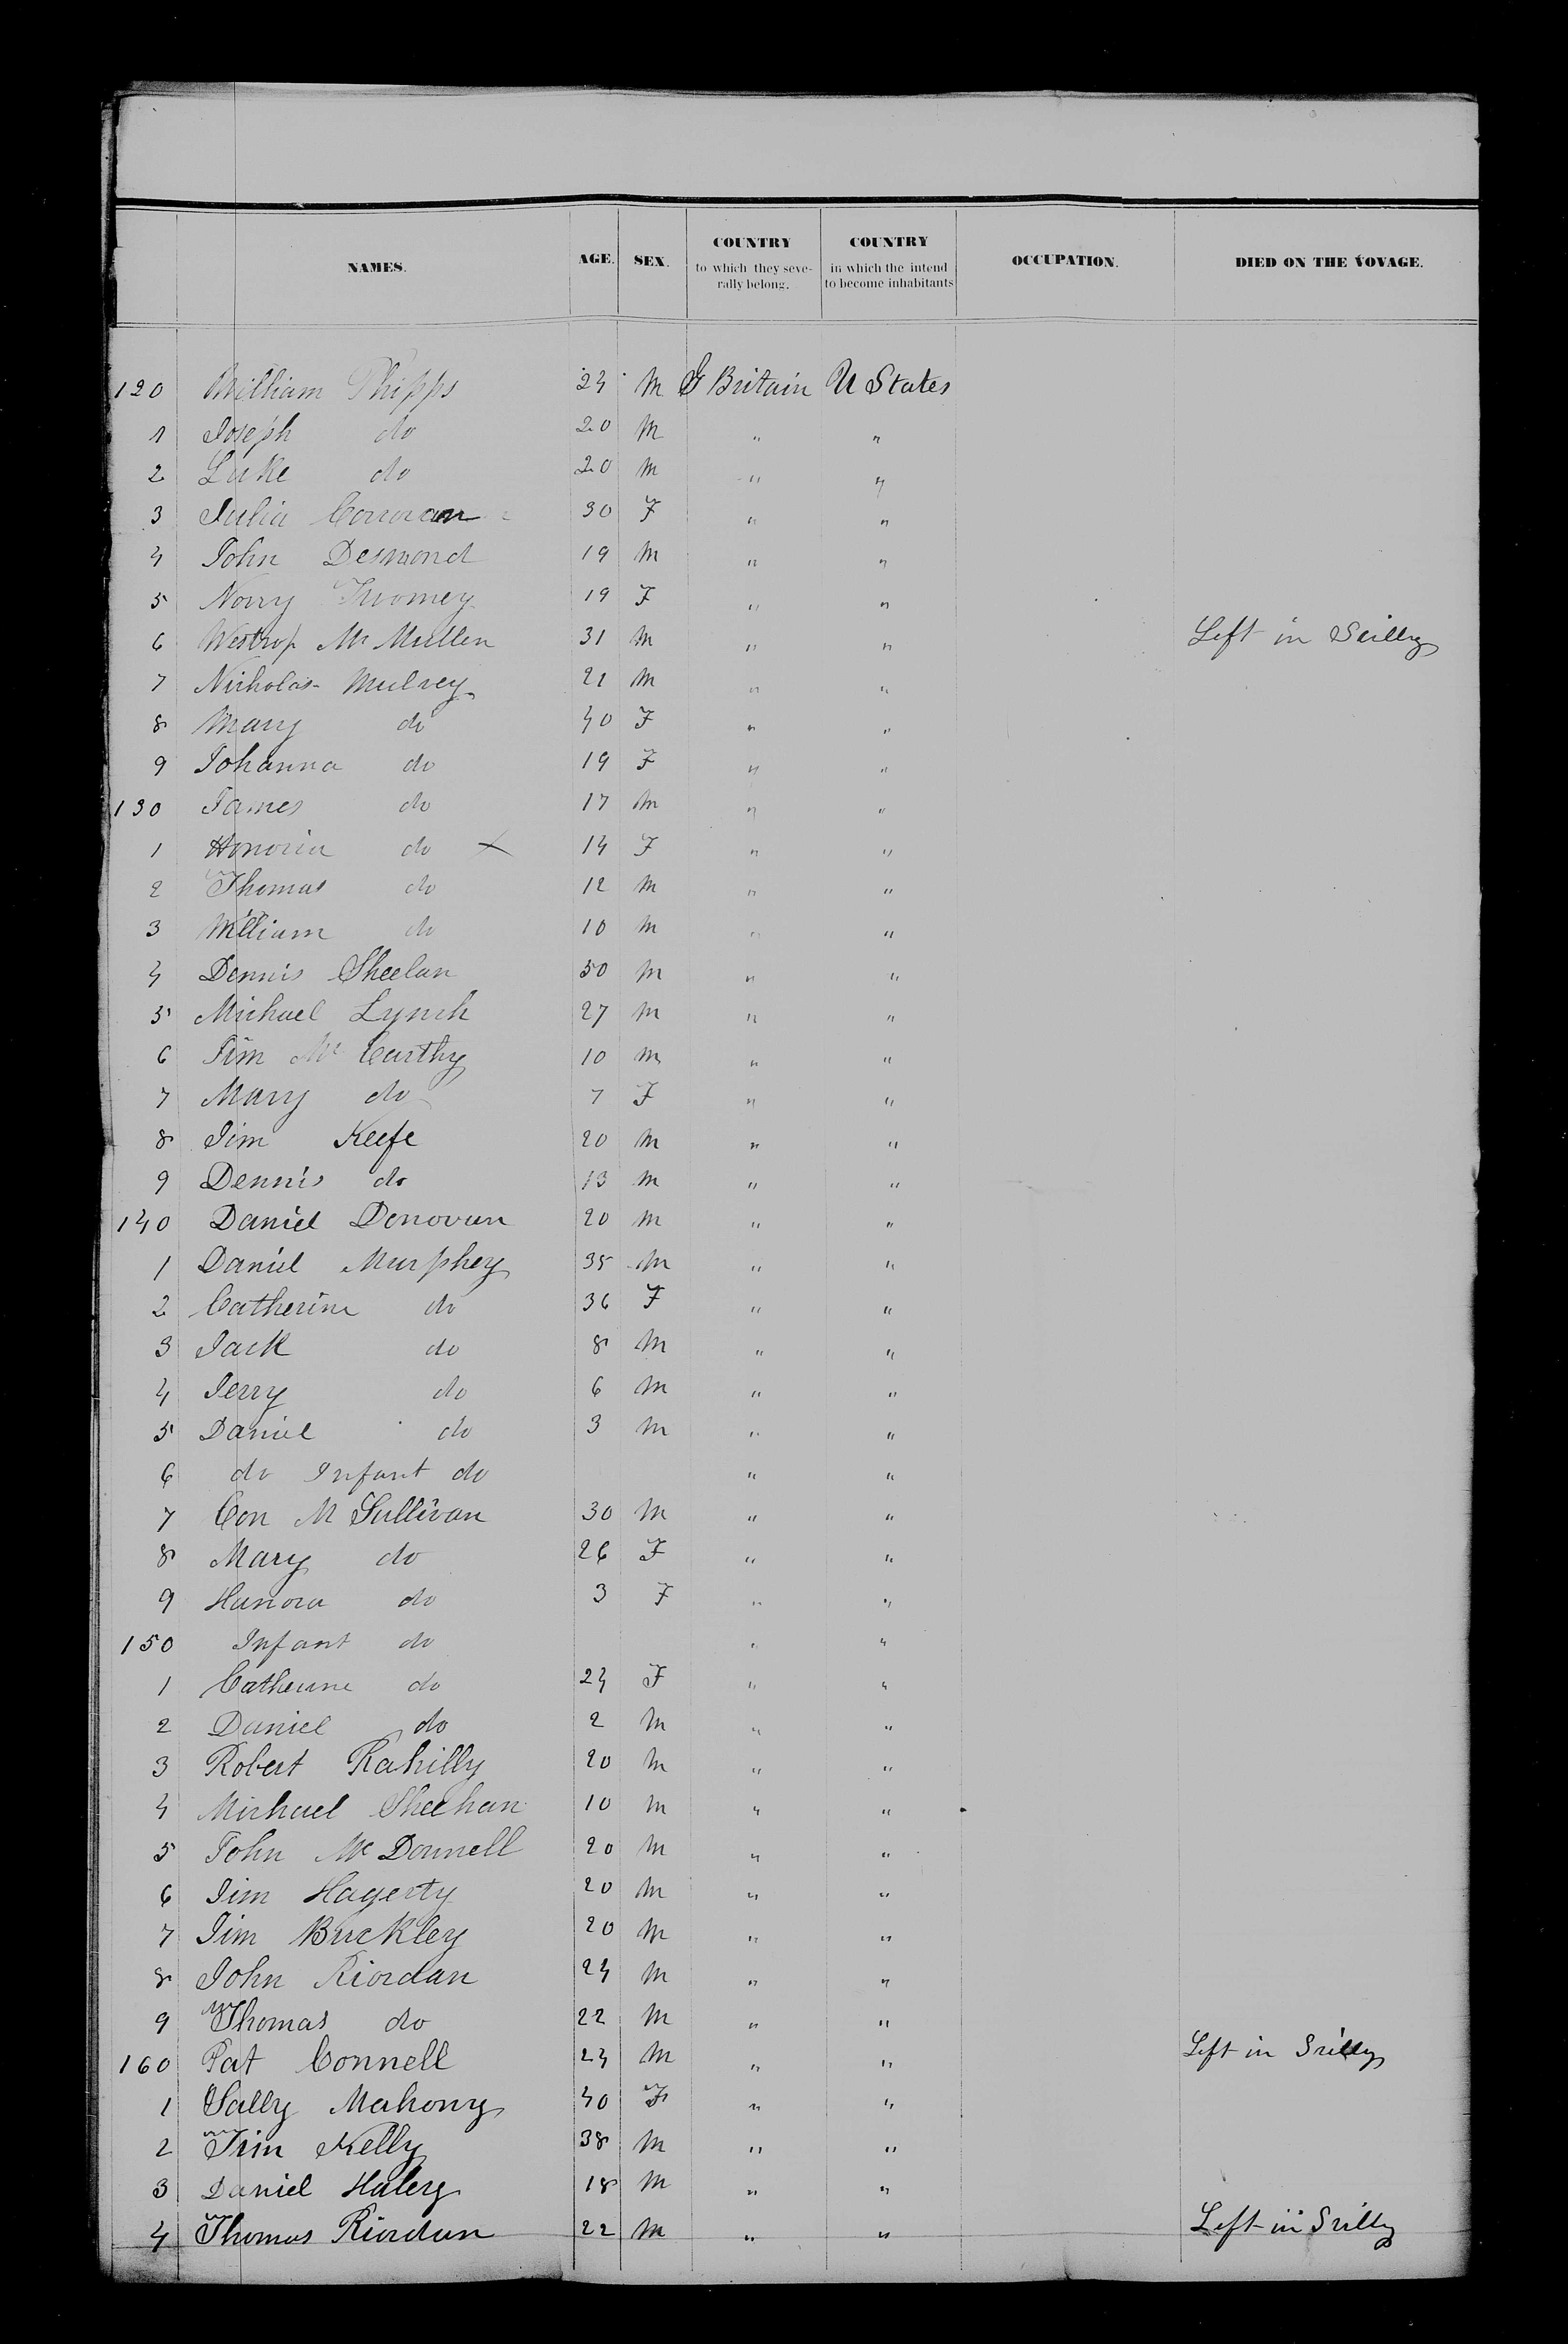 NAMES. AGE. SEX. COUNTRY to which they seve-rally belong. COUNTRY in which the intend to become inhabitants OCCUPATION. DIED ON THE VOYAGE.
120 William Phipps 24 M G Britain U States
1 Joseph do 20 M " "
2 Luke do 20 M " "
3 Julia Corcoran 30 F " "
4 John Desmond 19 M " "
5 Norry Twomey 19 F " "
6 Westrop Mc Mullen 31 M " " Left in Scilly
7 Nicholas Mulrey 21 M " "
8 Mary do 40 F " "
9 Johanna do 19 F " "
130 James do 17 M " "
1 Honoria do X 14 F " "
2 Thomas do 12 M " "
3 William do 10 M " "
4 Dennis Sheelan 50 M " "
5 Michael Lynch 27 M " "
6 Tim Mc Carthy 10 M " "
7 Mary do 7 F " "
8 Jim Keefe 20 M " "
9 Dennis do 13 M " "
140 Daniel Donovan 20 M " "
1 Daniel Murphey 35 M " "
2 Catherine do 36 F " "
3 Jack do 8 M " "
4 Jerry do 6 M " "
5 Daniel do 3 M " "
6 do Infant do " "
7 Con M Sullivan 30 M " "
8 Mary do 26 F " "
9 Hanora do 3 F " "
150 Infant do " "
1 Catherine do 24 F " "
2 Daniel do 2 M " "
3 Robert Rahilly 20 M " "
4 Michael Sheehan 10 M " "
5 John Mc Donnell 20 M " "
6 Jim Hagerty 20 M " "
7 Jim Buckley 20 M " "
8 John Riordan 24 M " "
9 Thomas do 22 M " "
160 Pat Connell 24 M " " Left in Scilly
1 Sally Mahony 40 F " "
2 Tim Kelly 38 M " "
3 Daniel Haley 18 M " "
4 Thomas Riordan 22 M " " Left in Scilly